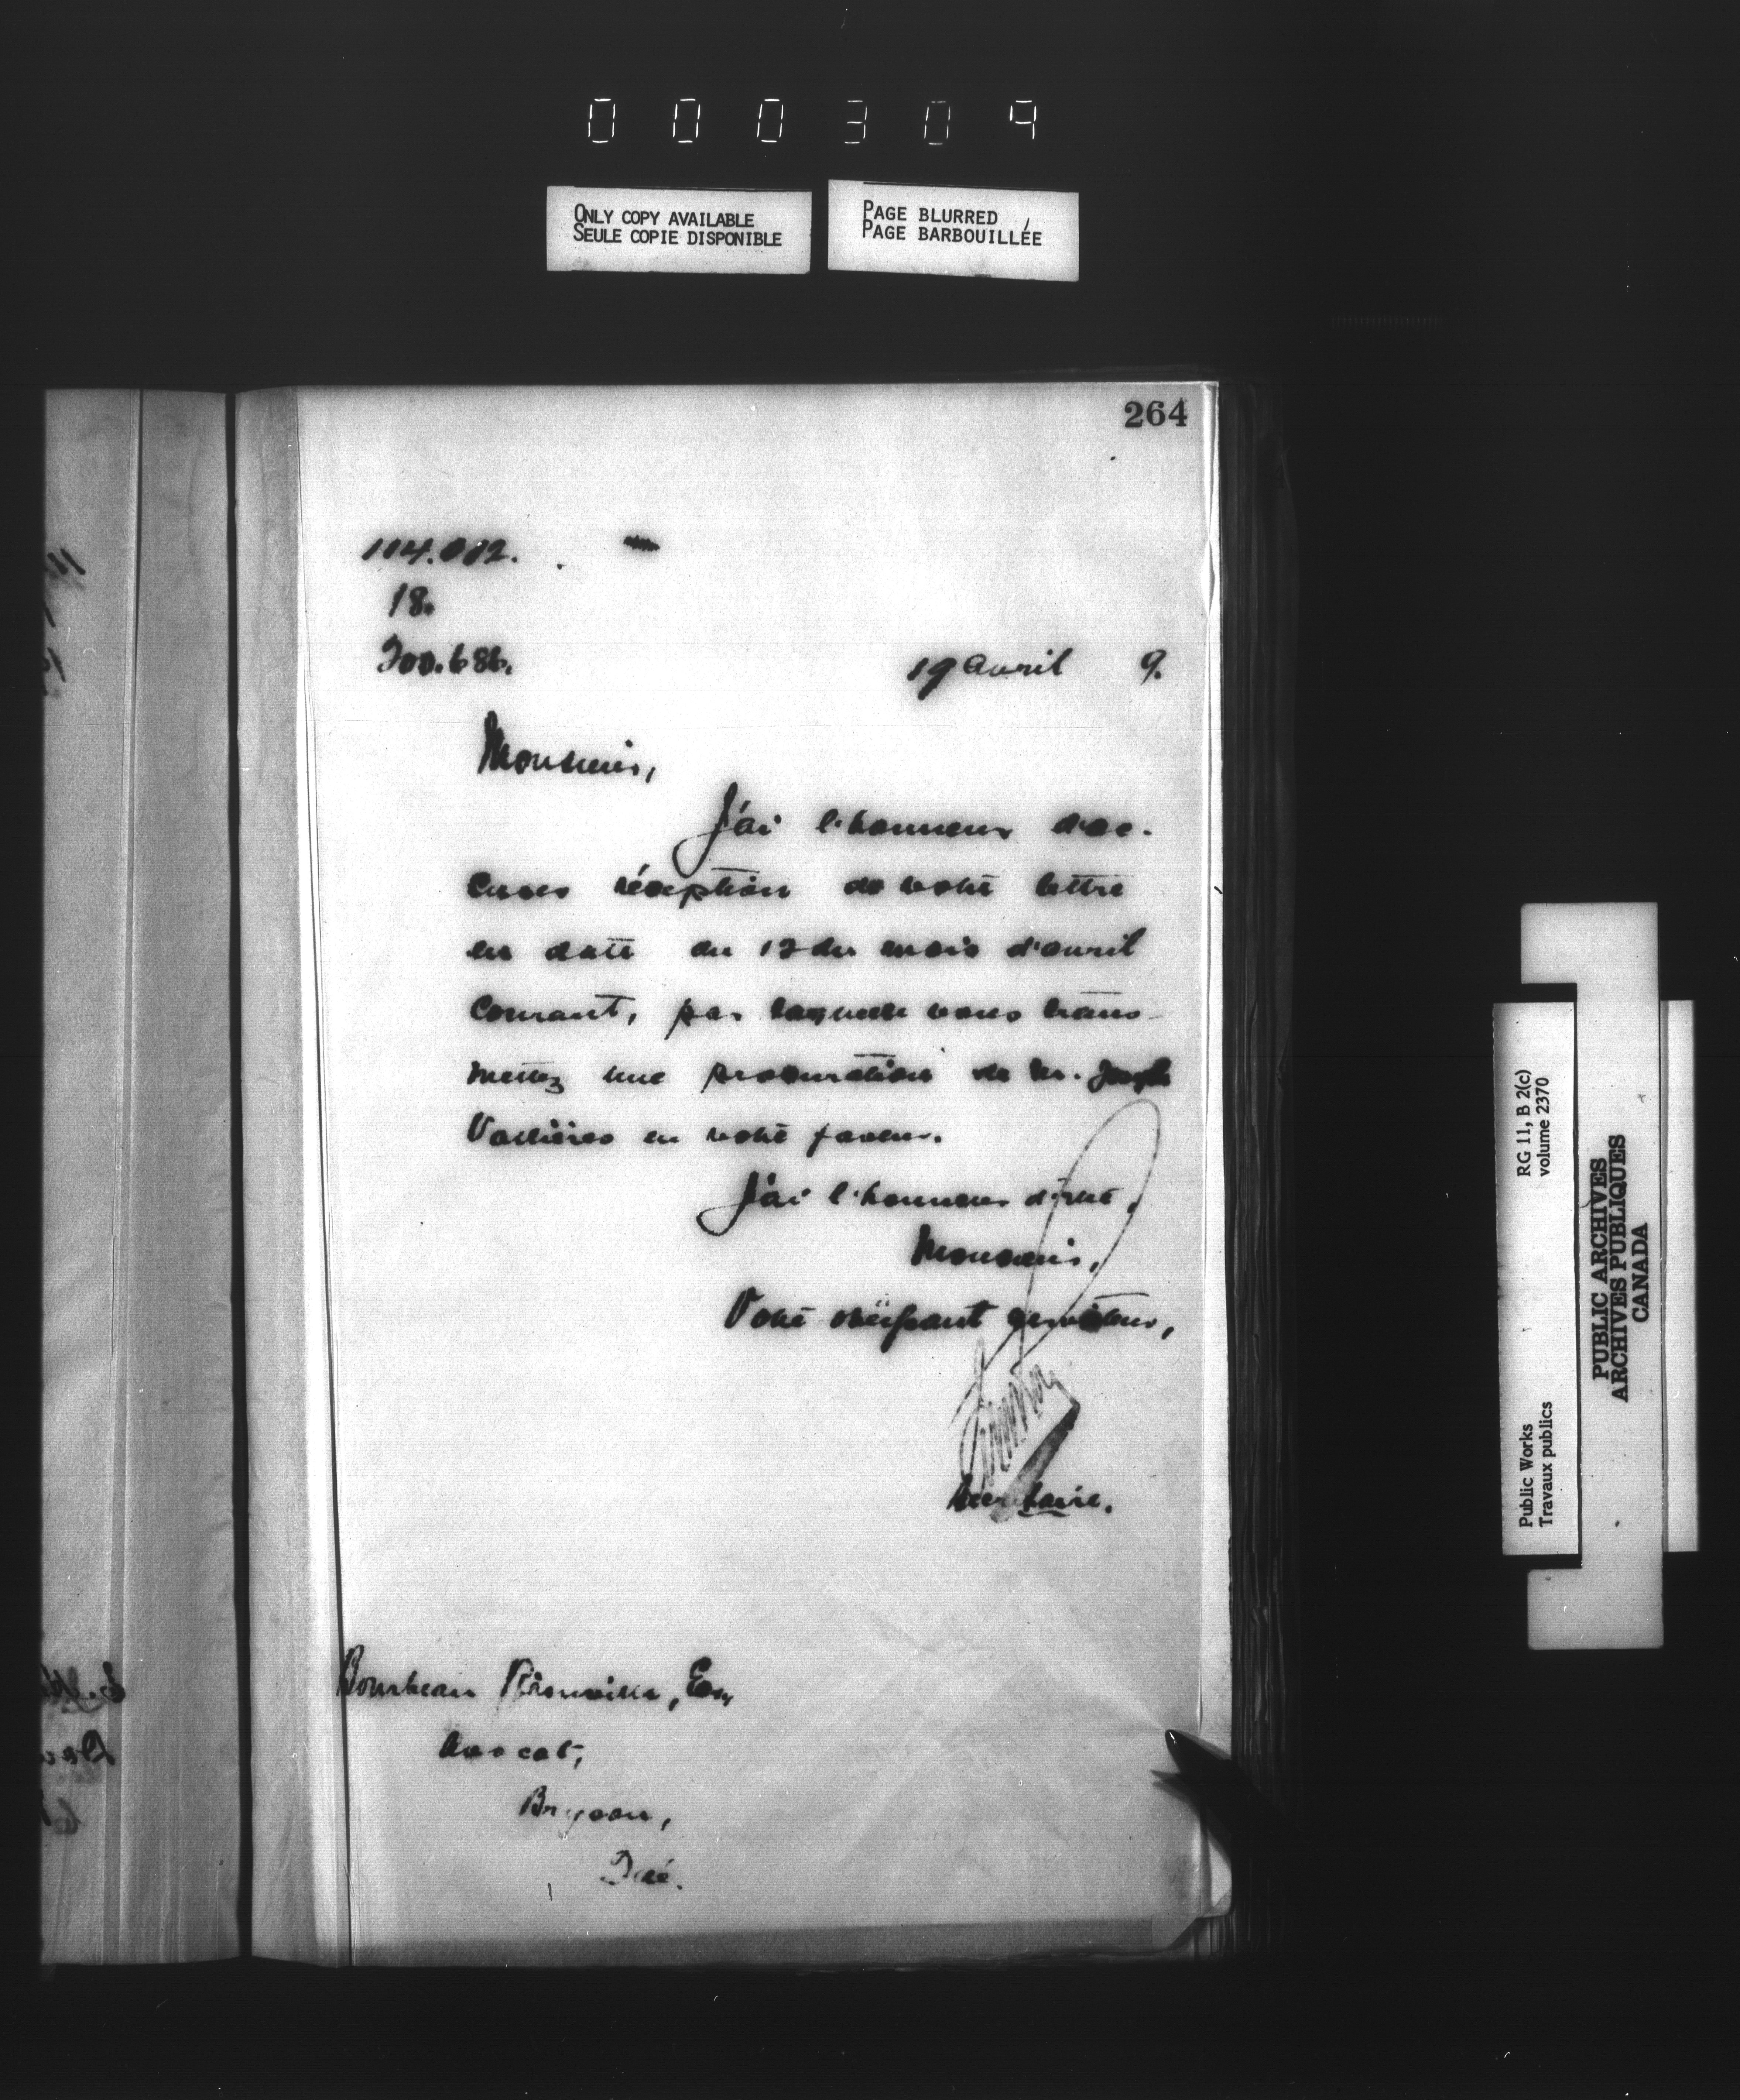 000309
ONLY COPY AVAILABLE
SEULE COPIE DISPONIBLE
PAGE BLURRED
PAGE BARBOUILLÉE
264
114.012.
18.
200.686.
19 avril 9.
Monsieur,
J'ai l'honneur d'ac-
cuser réception de votre lettre
en date du 12 du mois d'avril
courant, par laquelle vous trans-
mettez une procuration de Mr. Joseph
Vallières en votre faveur.
J'ai l'honneur d'être,
Monsieur,
Votre obéissant serviteur,
Secrétaire.
Bourbeau Rainville, Esq
Avocat,
Bryson,
Qué.
RG 11, B 2(c)
volume 2370
Public Works
Travaux publics
PUBLIC ARCHIVES
ARCHIVES PUBLIQUES
CANADA